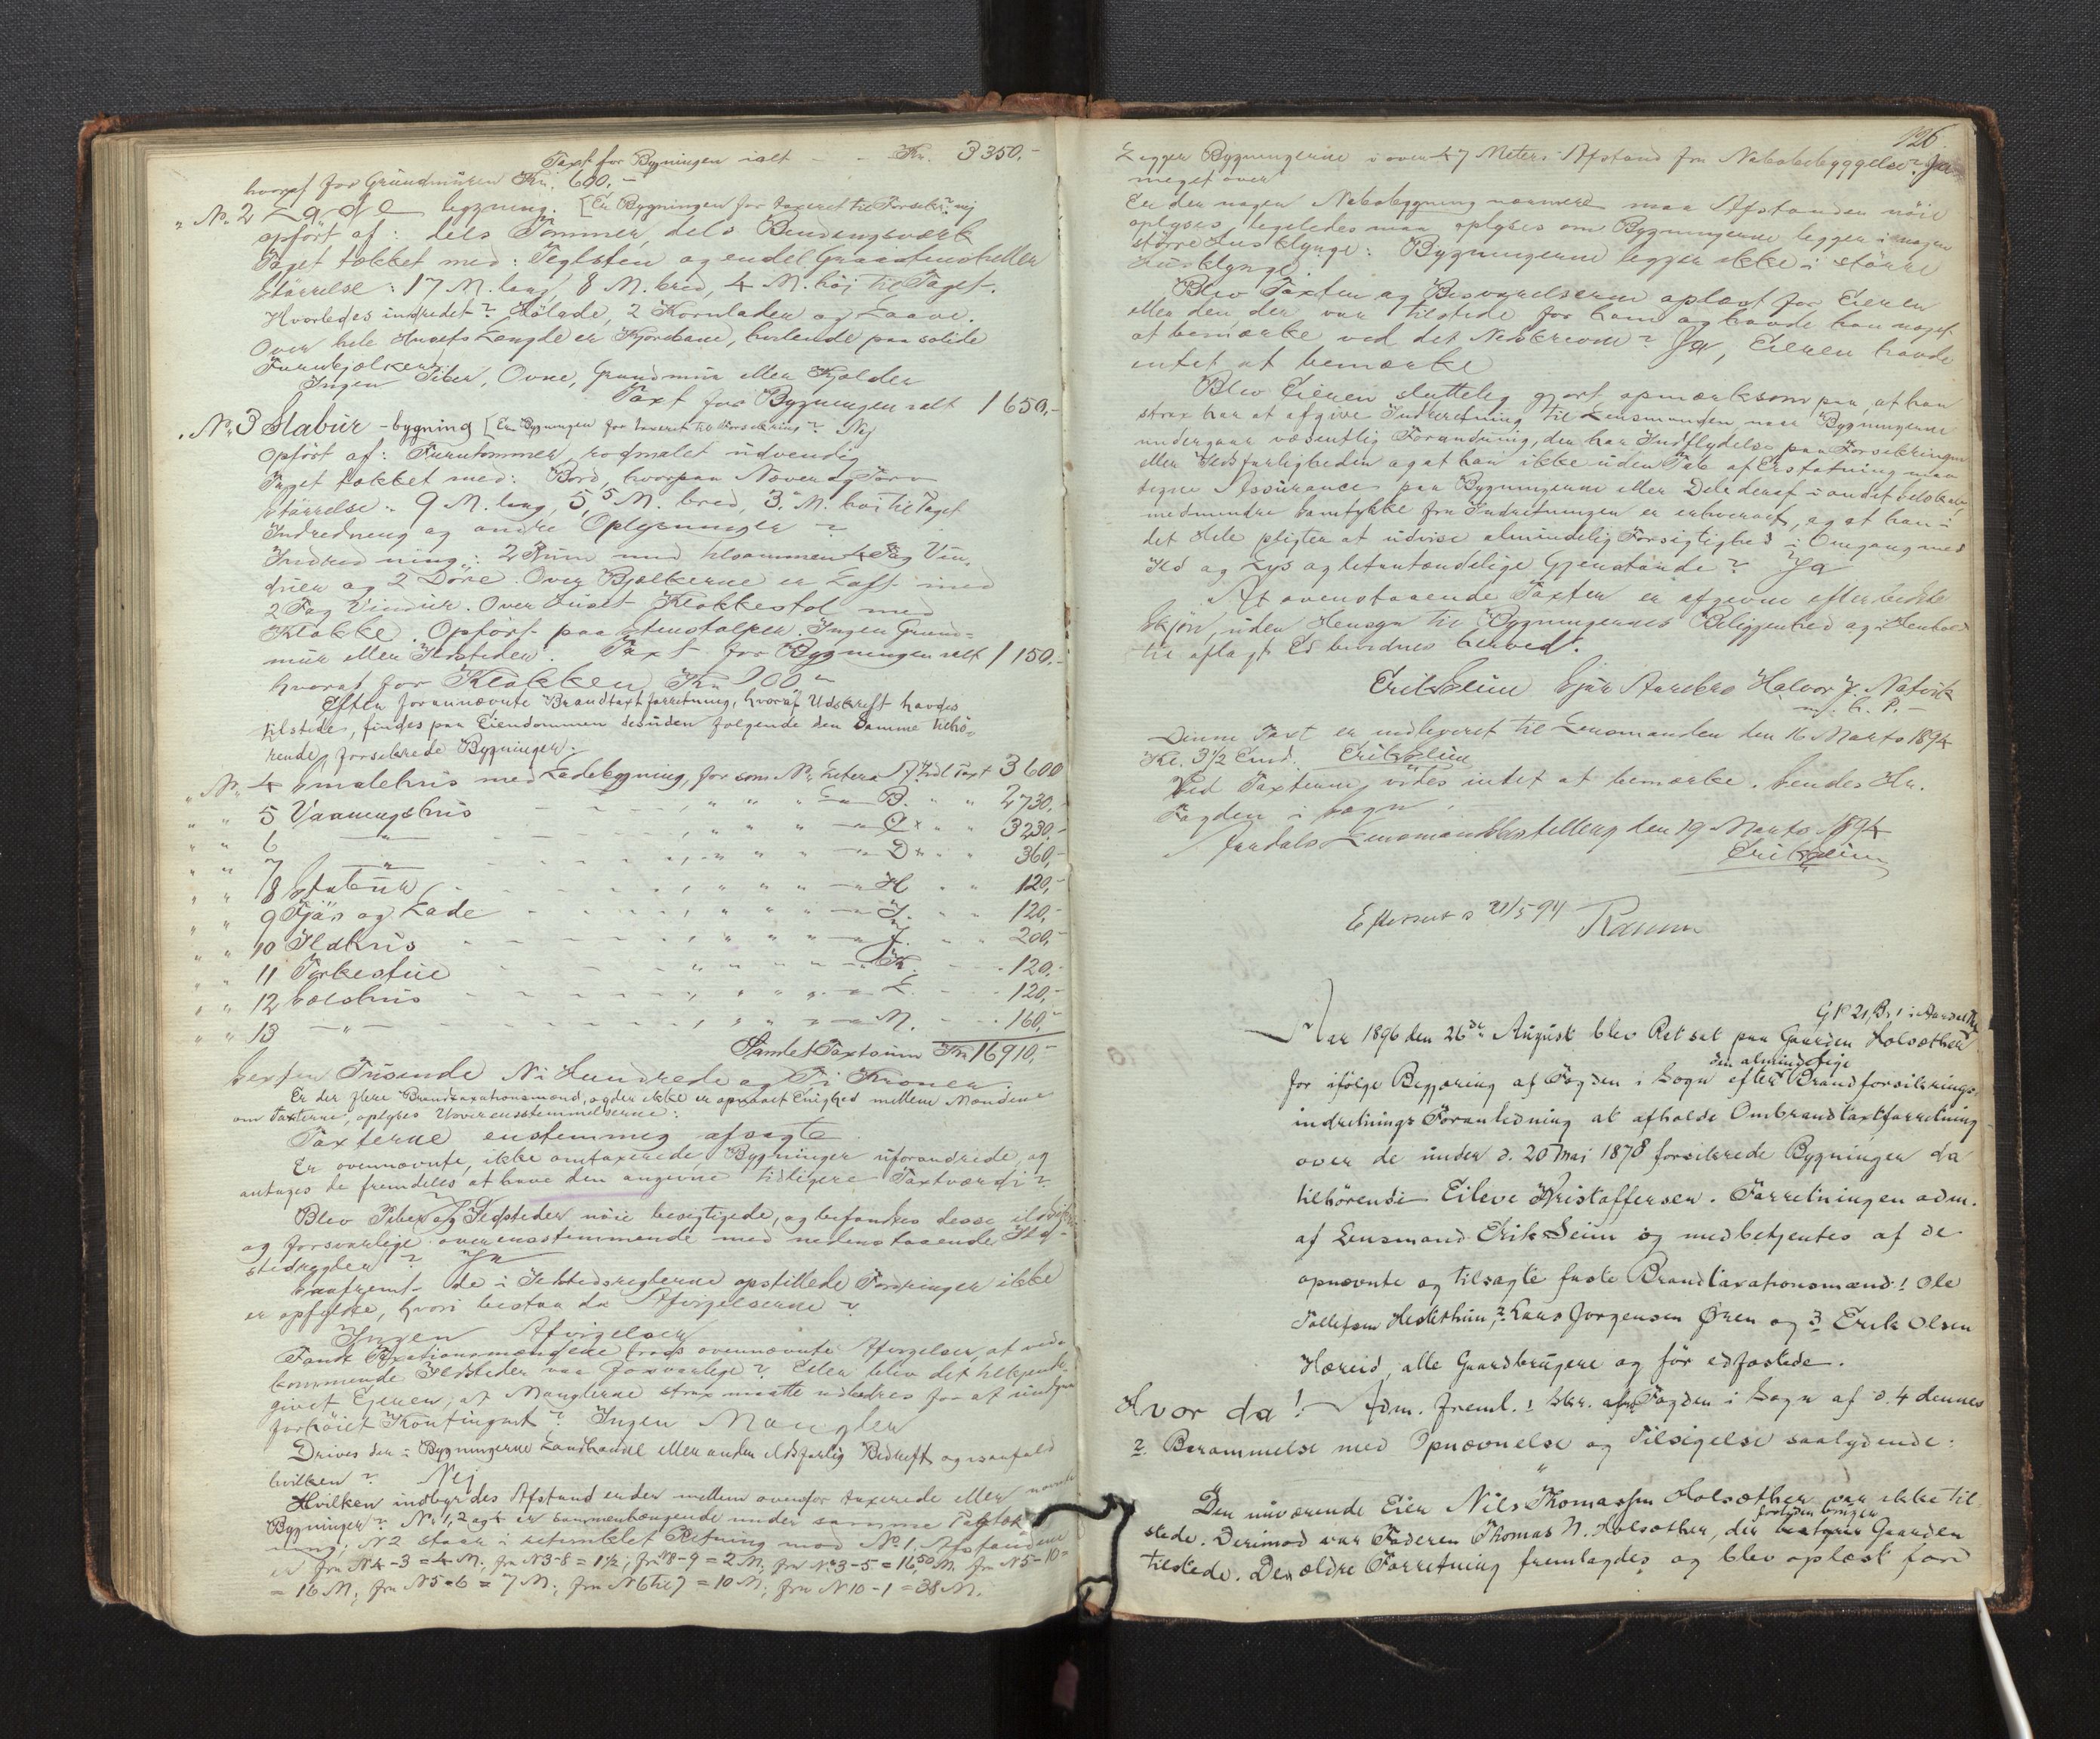 Taxt for Bygningen ialt - - Kr. 3350.-
hvoraf for Grundmuren Kr. 600.-
" No. 2 Lade bygning. [Er Bygningen før taxeret til Forsikr.? nej
opført af: dels Tømmer, dels Bindingsværk
Taget tækket med: Teglsten og endel Graastensheller
Størrelse: 17 M. lang, 8 M. bred, 4 M. høi til Taget.
Hvorledes indredet? Hølade, 2 Kornlader og Laave.
Over hele Husets Længde er Kjørebane, hvilende paa solide
Furubjelker.
Ingen Piber, Ovne, Grundmur eller Kjelder
Taxt for Bygningen ialt 1650,-
" No. 3 Stabur - bygning [Er Bygningen før taxeret til Forsikring? Nej
opført af: Furutømmer, rødmalet udvendig
Taget tækket med: Bord, hvorpaa Næver og Torv
Størrelse: 9 M. lang, 5,5 M. bred, 3. M. høi til Taget
Indredning og andre Oplysninger?
Indredning: 2 Rum med tilsammen 4 Fag Vin-
duer og 2 Døre. Over Bjælkerne er Loft med
2 Fag Vinduer. Over Huset Klokkestol med
Klokke. Opført paa Stenstolper. Ingen Grund-
mur eller Ildsteder. Taxt for Bygningen ialt 1150.-
hvoraf for Klokken Kr. 100 "
Efter forannævnte Brandtaxtforretning, hvoraf Udskrift havdes
tilstede, findes paa Eiendommen desuden følgende den Samme tilhø-
rende, forsikrede Bygninger:
" No. 4 Smalehus med Ladebygning, før som No. Litera A, Ialt Taxt 3600
" " 5 Vaaningshus - - - , " " " - B. " " 2730.-
" " 6 - " - - - - , " " " - C. " " 3230.-
" " 7 - " - - - - , " " " - D. " " 360,-
" " 8 Stabur - - - , " " " - H. " " 120,-
" " 9 Fjøs og Lade - - - , " " " - I. " " 120,-
" " 10 Ildhus - - - , " " " - J. " " 200,-
" " 11 Tørkestue - - - " " " " - K. - - 120,-
" " 12 Sælshus - - - , " " " - L. - - 120,-
" " 13 - " - - - - , " " " - M. - - 160,-
Samlet Taxtsum Kr. 16910,-
Sexten Tusende Ni Hundrede og Ti Kroner.
Er der flere Brandtaxationsmænd, og der ikke er opnaaet Enighed mellem Mændene
om Taxterne, oplyses Uoverensstemmelserne:
Taxterne enstemmig afsagte.
Er ovennævnte, ikke omtaxerede, Bygninger uforandrede, og
antages de fremdeles at have den angivne tidligere Taxtværdi?
Ja
Blev Piber og Ildsteder nøie besigtigede, og befandtes disse ildsikre
og forsvarlige overensstemmende med nedenstaaende Ild-
stedregler? Ja
Saafremt de i Ildstedsreglerne opstillede Fordringer ikke
er opfyldte, hvori bestaa da Afvigelserne?
Ingen Afvigelser
Fandt Taxationsmændene trods ovennævnte Afvigelser, at ved-
kommende Ildsteder var forsvarlige? Eller blev det tilkjende-
givet Ejeren, at Manglerne strax maatte udbedres for at undgaa
forhøiet Kontingent? Ingen Mangler
Drives der i Bygningerne Landhandel eller anden ildsfarlig Bedrift og isaafald
hvilken? Nej
Hvilken indbyrdes Afstand er der mellem ovenfor taxerede eller nævnte
Bygninger? No. 1, 2 og 4 er sammenhængende under samme Tagtæk-
ning; No. 2 staar i retvinklet Retning mod No. 1. Afstandene
er fra N 4 - 3 = 4 M; fra N 3-8 = 1½; fra N 8-9 = 2 M, fra No. 3-5 = 16,50 M. fra N 5-10 =
= 16 M; fra N 5-6 = 7 M; fra N 6 til 7 = 10 M; fra N 10 - 1 = 38 M.
126.
Ligger Bygningerne i over 47 Meters Afstand fra Nabobebyggelse? Ja
meget over
Er der nogen Nabobygning nærmere maa Afstanden nøie
oplyses, ligeledes maa oplyses om Bygningerne ligger i nogen
større Husklynge: Bygningerne ligger ikke i større
Husklynge.
Blev Taxten og Besvarelserne oplæst for Eieren
eller den, der var tilstede for ham og havde han noget
at bemærke ved det Nedskrevne? Ja, Eieren havde
intet at bemærke
Blev Eieren sluttelig gjort opmærksom paa, at han
strax har at afgive Indberetning til Lensmanden, naar Bygningerne
undergaar væsentlig Forandring, der har Indflydelse paa Forsikringen
eller Ildsfarligheden og at han ikke uden Tab af Erstatning maa
tegne Assurance paa Bygningerne eller Dele deraf i andet Selskab,
medmindre Samtykke fra Indretningen er erhvervet, og at han i
det Hele pligter at udvise almindelig Forsigtighed i Omgang med
Ild og Lys og letantændelige Gjenstande? Ja
At ovenstaaende Taxter er afgivne efter bedste
Skjøn, uden Hensyn til Bygningernes Beliggenhed og i Henhold
til aflagt Ed bevidnes herved.
Erik Seim Sjur Aarebro Halvor J. Natvik
m. h. P.
Denne Taxt er indleveret til Lensmanden den 16 Marts 1894
Kl. 3½ Emd. Erik Seim
Ved Taxterne vides intet at bemærke. Sendes Hr.
Fogden i Sogn.
Aardals Lensmandsbestilling den 19 Marts 1894
Erik Seim
Efterseet d 21/5 94
G No 21, B. 1 i Aardal Th.
Aar 1896 den 26de August blev Ret sat paa Gaarden Holsæther
den almindelige
for ifølge Begjæring af Fogden i Sogn efter Brandforsikrings-
indretnings Foranledning at afholde Ombrandtaxtforretning
over de under d. 20 Mai 1878 forsikrede Bygninger da
tilhørende Eileve Kristoffersen. Forretningen adm.
af Lensmand Erik Seim og medbetjentes af de
opnævnte og tilsagte faste Brandtaxationsmænd: 1 Ole
Tollefsen Hestethun, 2 Lars Jørgensen Øren og 3 Erik Olsen
Hæreid, alle Gaardbrugere og før edfæstede.
Hvor da! Adm. freml. 1 Skr. af Fogden i Sogn af d. 4 dennes
2 Berammelse med Opnævnelse og Tilsigelse saalydende:
"
Den nuværende Eier Nils Thomassen Holsæther var ikke til
fortiden bruger
stede. Derimod var Faderen Thomas N. Holsæther, der Gaarden
tilstede. Den ældre Forretning fremlagdes og blev oplæst for